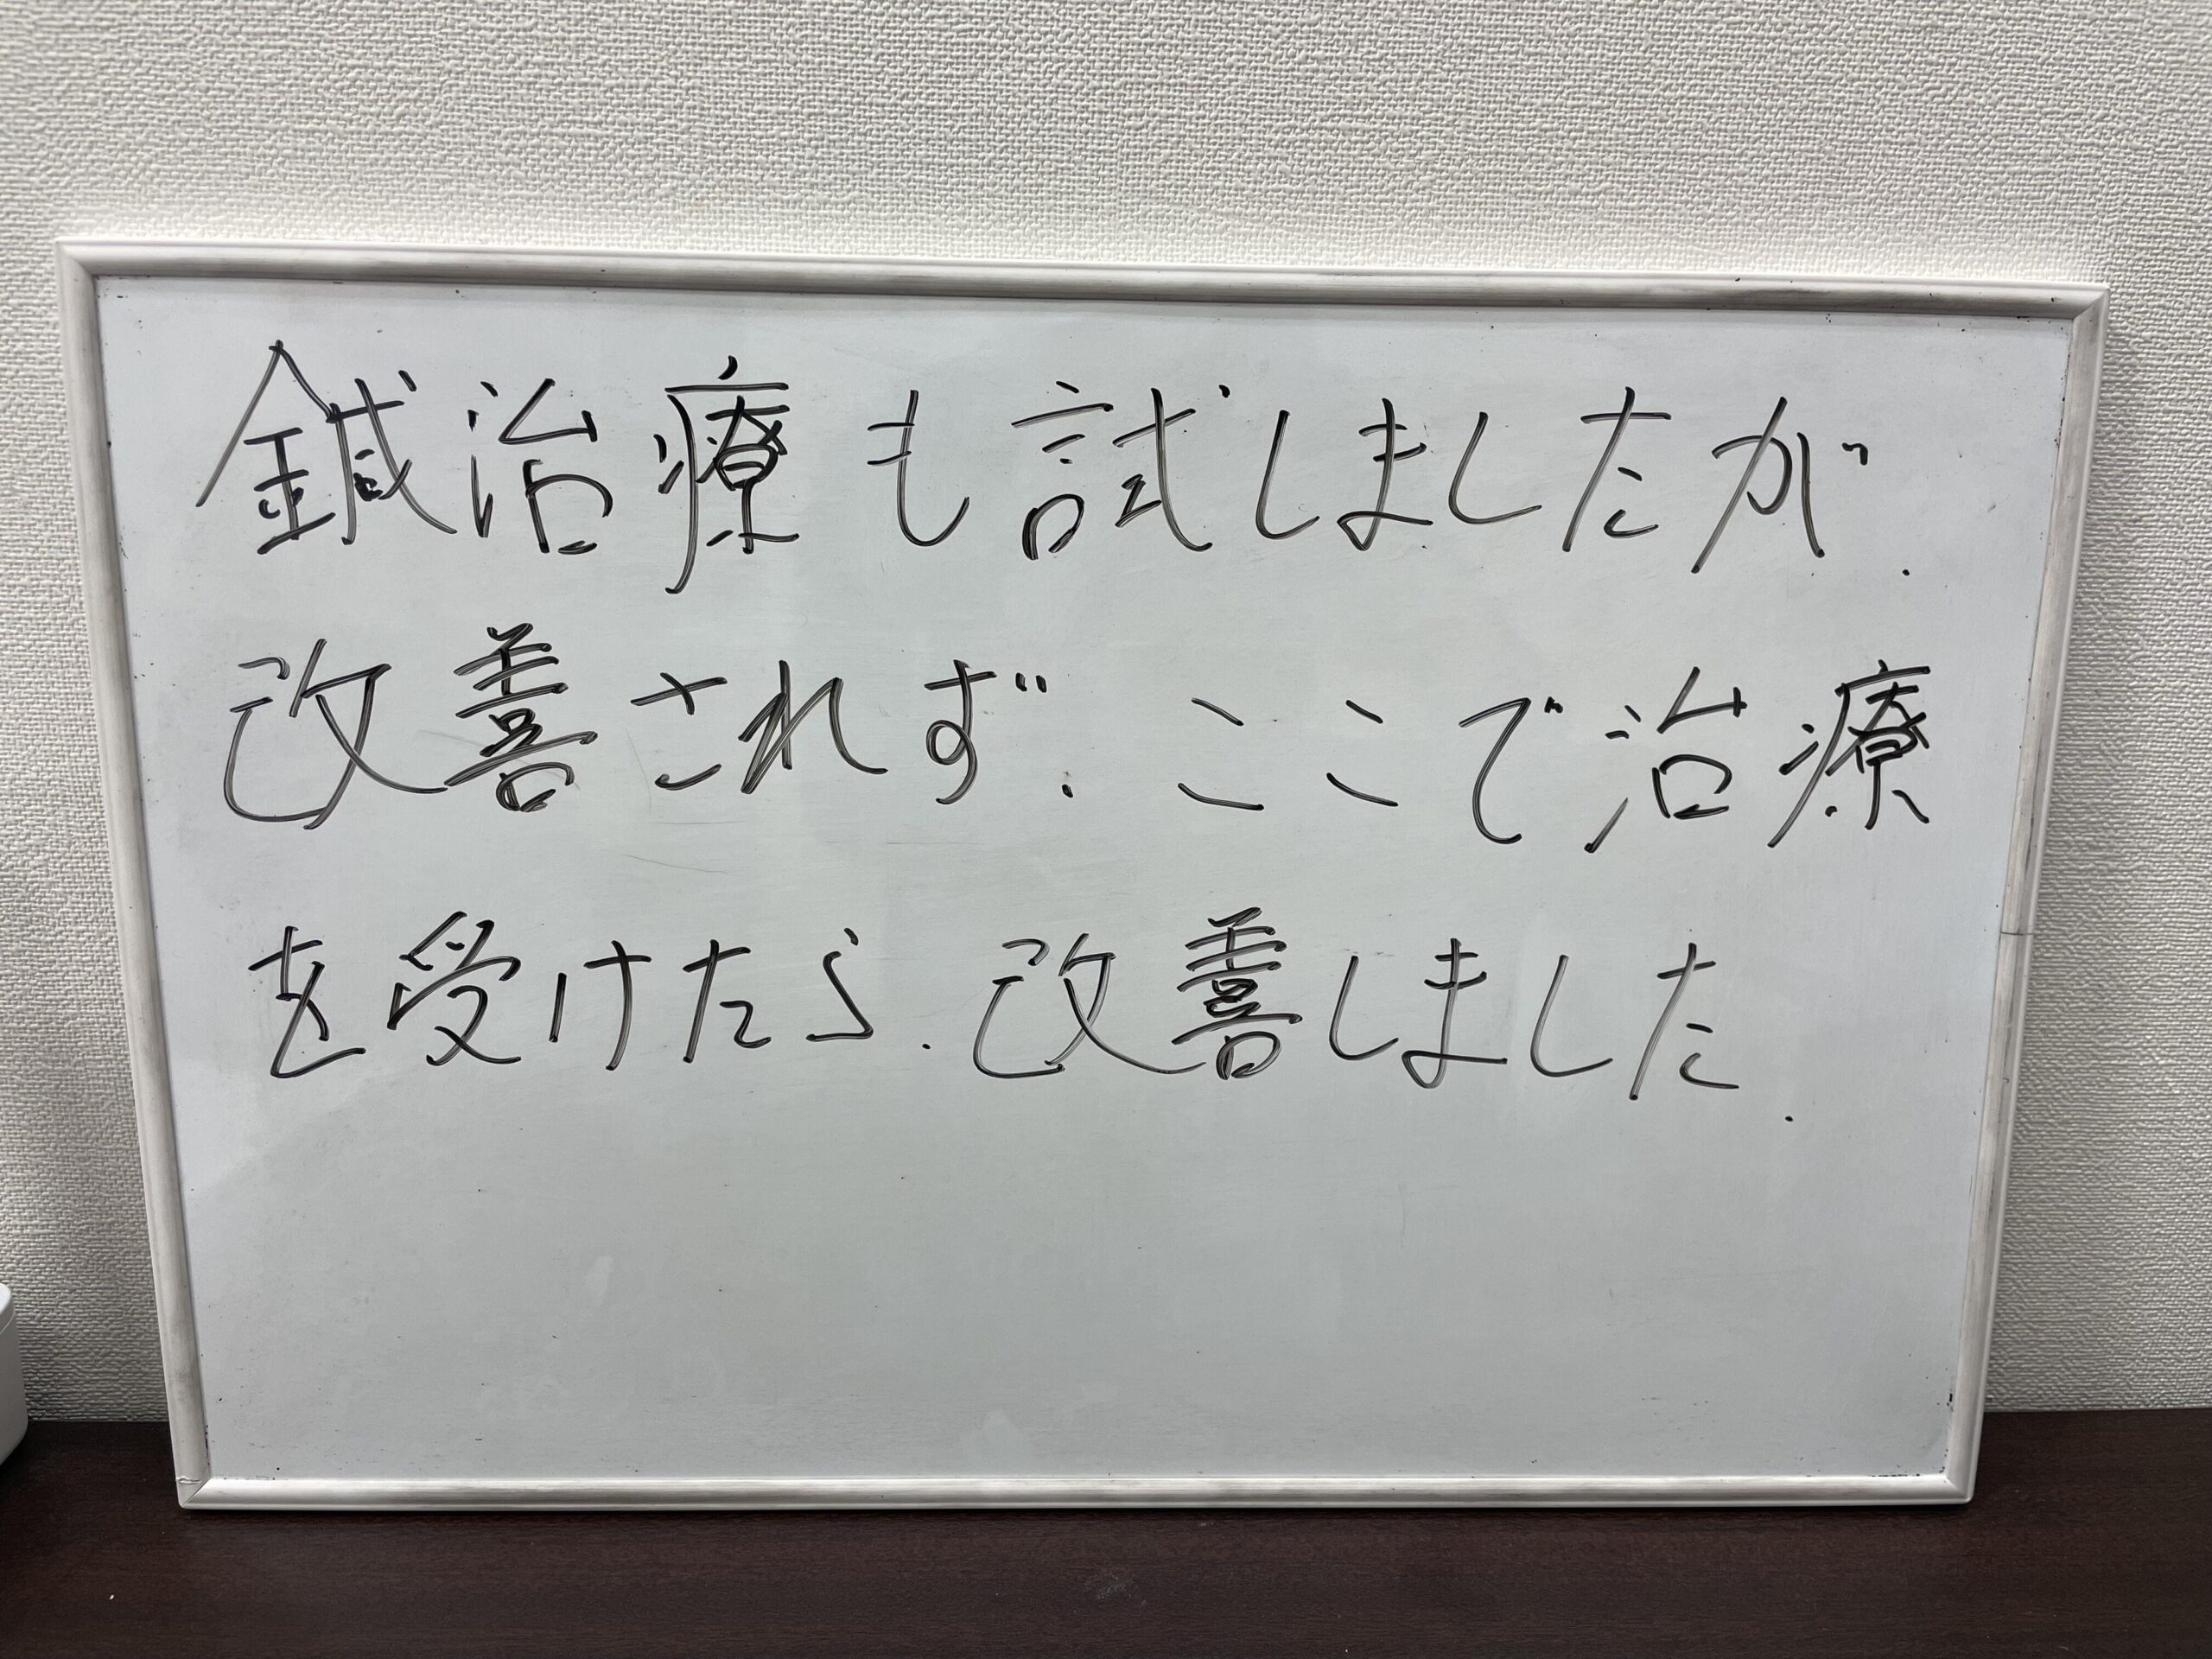 鍼治療も試しましたが.
改善されず. ここで治療
を受けたら.改善しました.